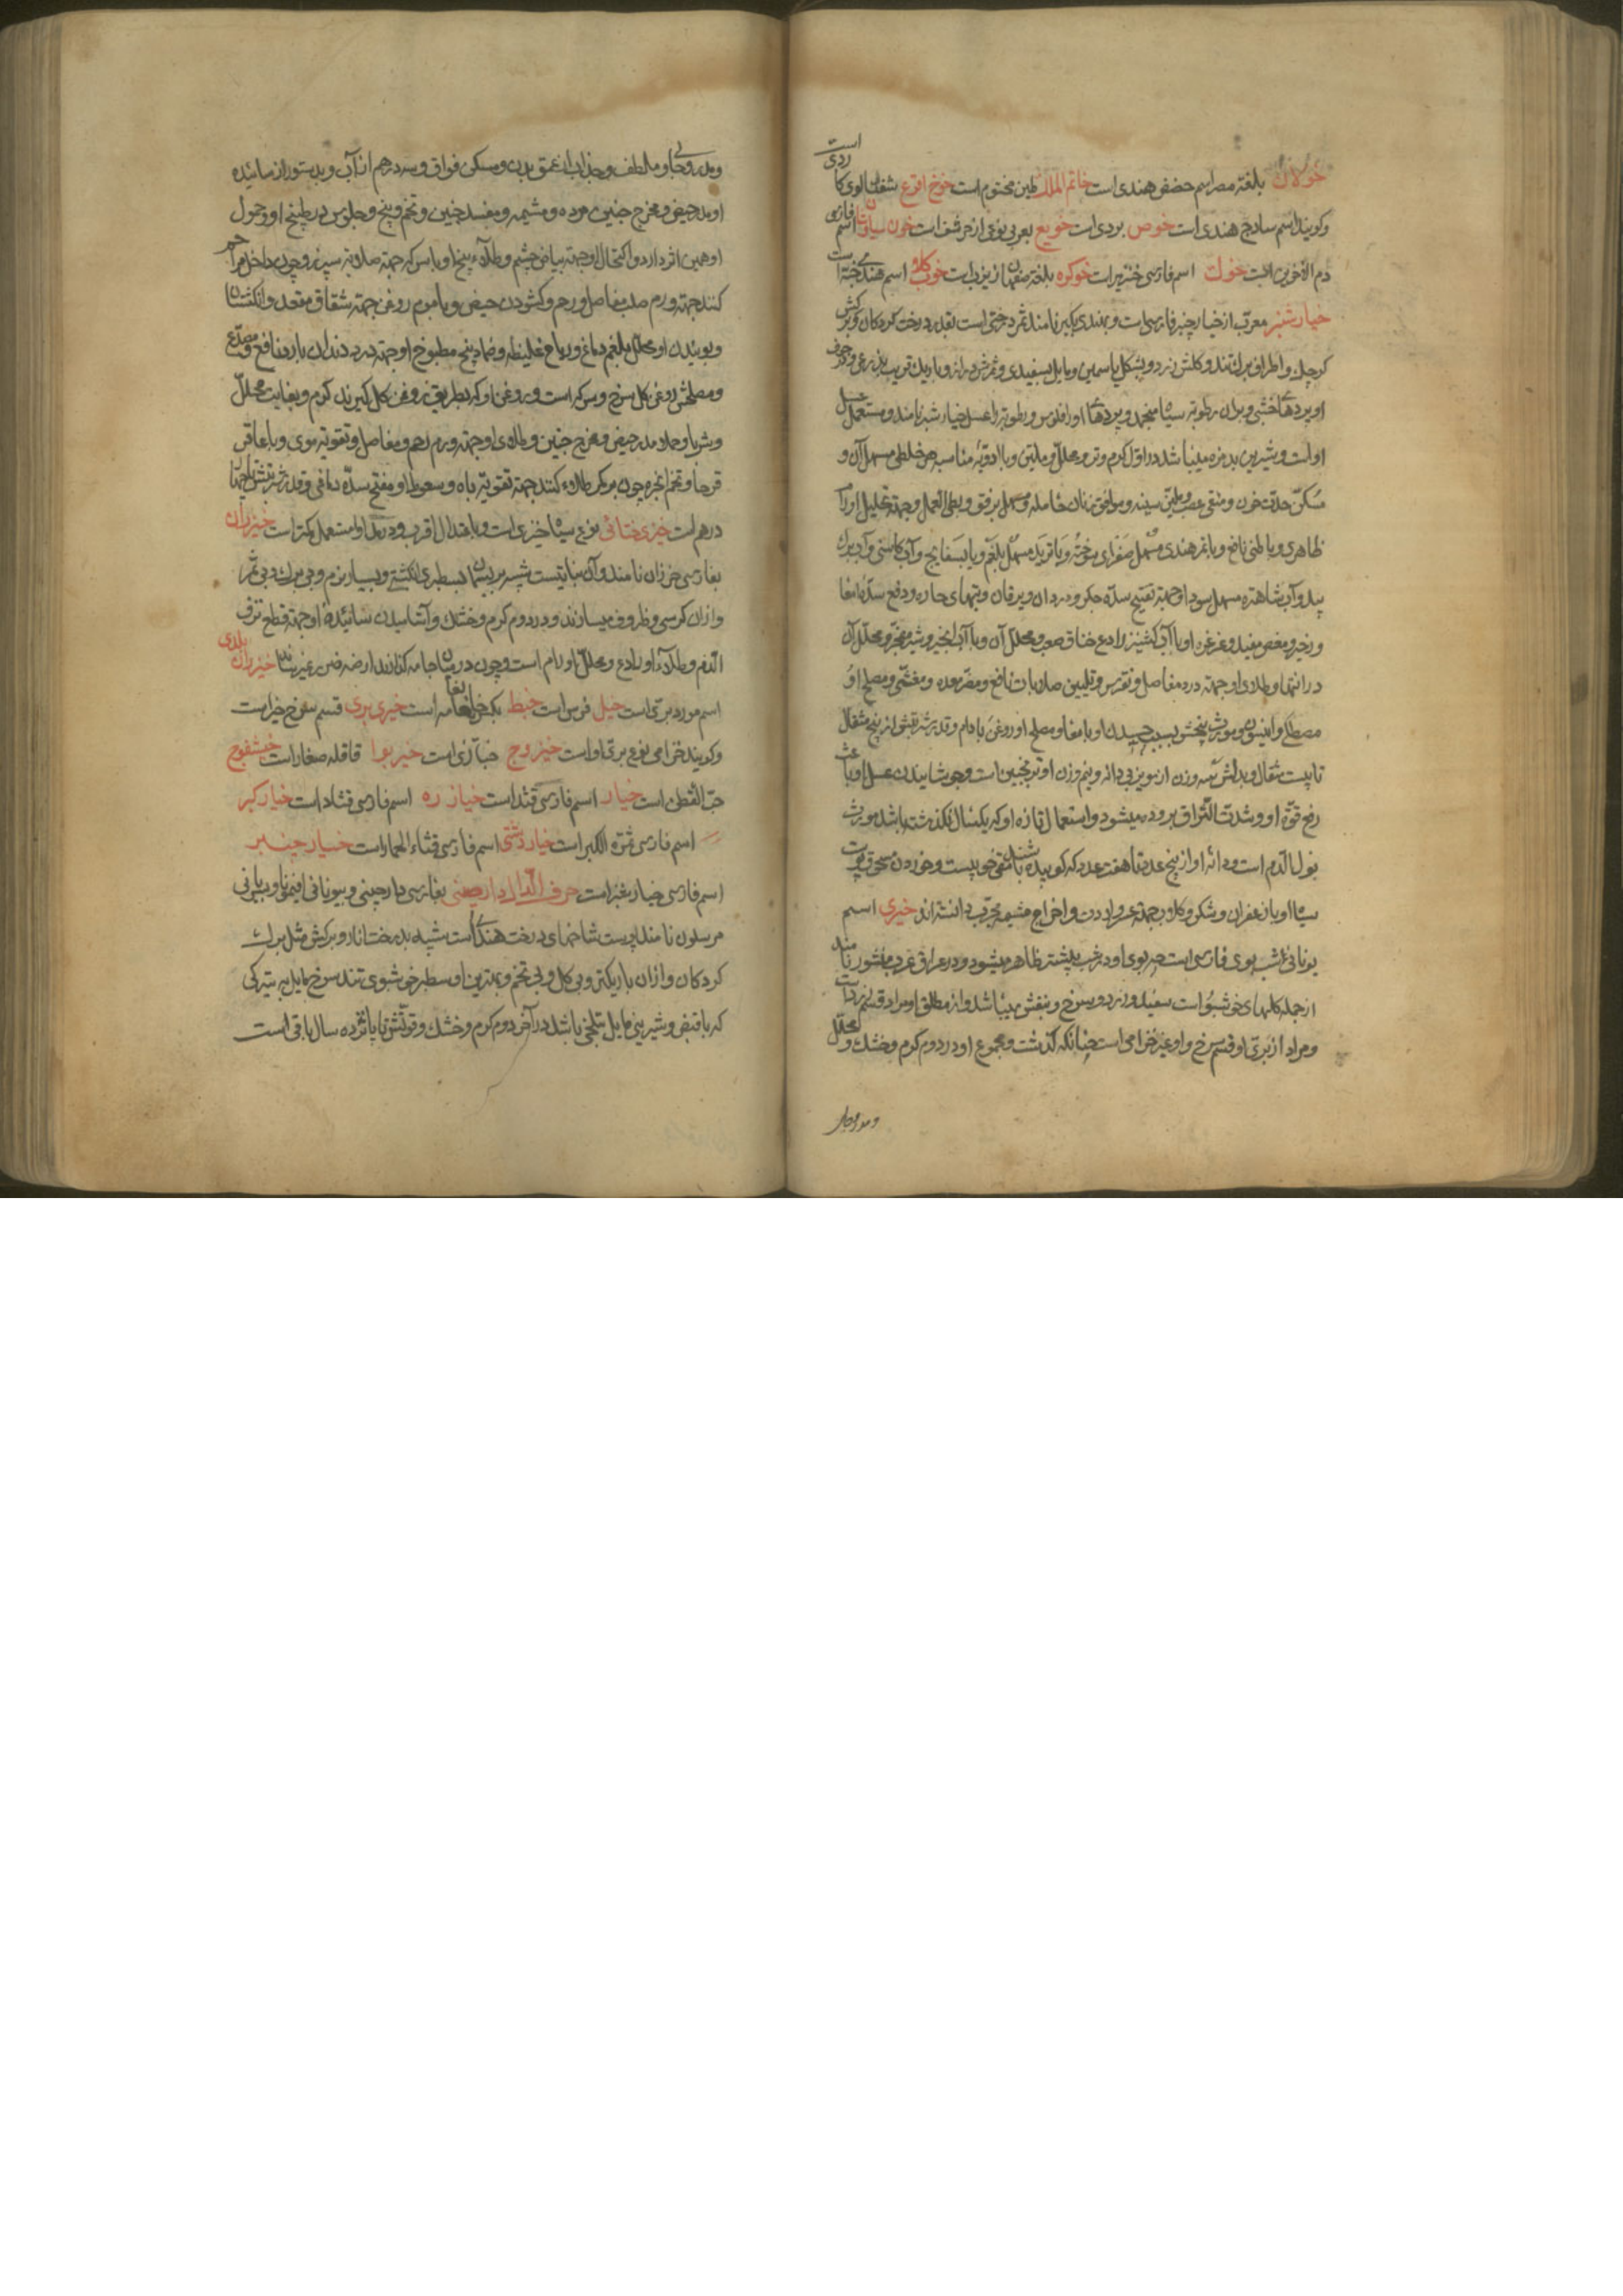 خولان بلغة مصر اسم حضض هندی است خاتم الملک طین مختوم است خوخ اقرع شفتالوی کاردی است
و کویند اسم ساذج هندی است خوص بردی است خویع بعربی نوعی از حرشف است خون سیاوشان اسم فارسی
دم الاخوین است خوک اسم فارسی خنزیر است خوکره بلغة اصفهان از یزید است خوب کلا اسم هندی خبه است
خیار شنبر معرب از خیار چنبر فارسی است و بهندی نامند ثمر درختی است بقدر درخت کردکان و برکش
کوچک و اطراف برک تند و کلش زرد و بشکل یاسمین و مایل بسفیدی و ثمرش دراز و باریک قریب بذرعی و در جوف
او پردهای خشبی و بران رطوبة سیاه منجمد و پردهای اورا فلوس و رطوبة را عسل خیار شنبر نامند و مستعمل عسل
اوست و شیرین بدمزه میباشد در اول کرم و تر و محلل و ملین و با ادویه مناسبه هر خلطی مسهل آن و
مسکن حدت خون و منقی عصب و ملین سینه و موافق زنان حامله و مسهل برفق و بطی العمل و جهة تحلیل اورام
ظاهری و باطنی نافع و با تمر هندی مسهل صفرای سوخته و با تربد مسهل بلغم و با بسفایج و آب کاسنی و آب برک
بید و آب شاهتره مسهل سودا و جهة تفتیح سده جکر و درد آن و یرقان و تبهای حاره و دفع سده امعا
و زحیر و مغص مفید و غرغره او با آب کشنیز رادع خناق صعب و محلل آن و با آب انجیر و شیر مفجر و محلل آن
در انتها و طلای او جهة درد مفاصل و نقرس و تلیین صلابات نافع و مضر معده و مغثی و مصلح او
مصطکی و انیسون و مورث پیچش بسبب چسپیدن او بامعا و مصلح او روغن بادام و قدر شربتش از پنج مثقال
تا بیست مثقال و بدلش سه وزن او مویز بی دانه و نیم وزن او ترنجبین است و جوشانیدن عسل او باعث
رفع قوه او و شدت التزاق بروده میشود و استعمال تازه او که یکسال نکذشته باشد مورث
بول الدم است و دانه او از پنج عدد تا هفت عدد که کوبیده باشند مقی خوبیست و خوردن مسحوق پوست
سیاه او با زعفران و شکر و کلاب جهة عسر ولادت و اخراج مشیمه مجرب دانسته اند خیری اسم
یونانی شب بوی فارسی است چه بوی او در شب بیشتر ظاهر میشود و در عراق عرب منثور نامند
از جمله کلهای خوشبو است سفید و زرد و سرخ و بنفش میباشد و از مطلق او مراد قسم زرد است
و مراد از بری او قسم سرخ و او غیر خزامی است چنانکه کذشت و مجموع او در دوم کرم و خشک و محلل
و مدر و جالی
و مدر و جالی و ملطف و جذاب از عمق بدن و مسکن فواق و سه درهم از آب و بدستور از سائیده
او مدر حیض و مخرج جنین مرده و مشیمه و مفسد جنین و تخم و بیخ و جلوس در طبیخ او و حمول
او همین اثر دارد و اکتحال او جهة بیاض چشم و طلاء بیخ او با سرکه جهة صلابة سپرز و چون داخل مراهم
کنند جهة ورم صلب مفاصل و رحم و کشودن حیض و با موم روغن جهة شقاق مقعد و انکشتان
و بوئیدن او محلل بلغم دماغ و ریاح غلیظه و ضماد بیخ مطبوخ او جهة درد دندان بارد نافع و مصدع
و مصلحش روغن کل سرخ و سرکه است و روغن او که بطریق روغن کل کیرند کرم و بغایت محلل
و شربا و حملا مدر حیض و مخرج جنین و طلای او جهة ورم رحم و مفاصل و تقویة موی و با عاقر
قرحا و تخم انجره چون بر مکر طلاء کنند جهة تقویة باه و سعوط او مفتح سده دماغی و قدر شربتش تا چهار
درهم است خیری ختائی نوعی سیاه خیری است و باعتدال اقرب و در عمل او مستعمل کمتر است خیزران
بفارسی خزران نامند و آن نباتیست شبیه بریسمان بسطبری انکشتی و بسیار نرم و بی برک و بی ثمر
و ازان کرسی و ظروف میسازند و در دوم کرم و خشک و آشامیدن سائیده او جهة قطع نزف
الدم و طلاء او رادع و محلل اورام است و چون درمیان جامه کذارند ارضه ضرر نمیرساند خیزران بلدی
اسم مورد بری است خیل فرس است خیط بکسر خا نعامه است خیری بری قسم سرخ خیر است
و کویند خزامی نوع بری او است خیزوج خبازی است خیر بوا قاقله صغار است خیشفوج
حب القطن است خیار اسم فارسی قثد است خیار زه اسم فارسی قثاد است خیار کبر
اسم فارسی ثمرة الکبر است خیار دشتی اسم فارسی قثاء الحمار است خیار چنبر
اسم فارسی خیار شنبر است حرف الدال دارصینی بفارسی دارچینی و بیونانی افیمونا و بسریانی
مرسلون نامند پوست شاخهای درخت هندی است شبیه بدرخت انار و برکش مثل برک
کردکان و ازان باریکتر و بی کل و بی تخم و بهترین او سطبر خوشبوی تند سرخ مایل به تیرکی
که با قبض و شیرینی مایل بتلخی باشد در آخر دوم کرم و خشک و قوتش تا پانزده سال باقی است